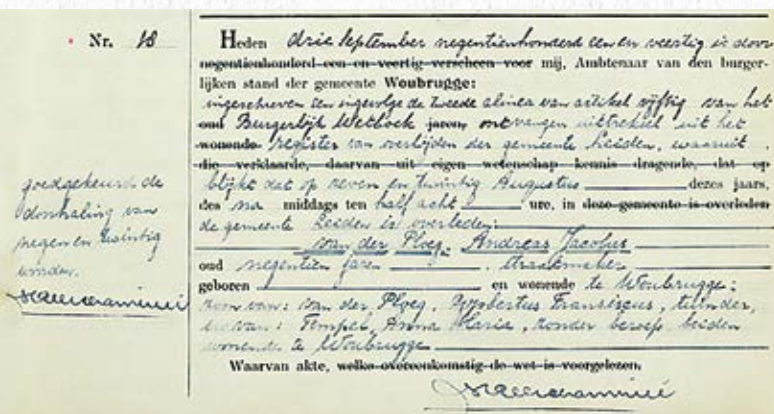 Nr. 18
goedgekeurd de
doorhaling van
negen en twintig
woorden.
Heden drie September negentienhonderd een en veertig is door
negentienhonderd een en veertig verscheen voor mij, Ambtenaar van den burger-
lijken stand der gemeente Woubrugge:
ingeschreven een ingevolge de tweede alinea van artikel vijftig van het
oud Burgerlijk Wetboek jaren, ontvangen uittreksel uit het
wonende register van overlijden der gemeente Leiden, waaruit
die verklaarde, daarvan uit eigen wetenschap kennis dragende, dat op
blijkt dat op zeven en twintig Augustus dezes jaars,
des na middags ten half acht ure, in deze gemeente is overleden
de gemeente Leiden is overleden:
van der Ploeg, Andreas Jacobus
oud negentien jaren,
geboren en wonende te Woubrugge;
zoon van: van der Ploeg, Franciscus, tuinder,
en van: Tempel, Anna Maria, zonder beroep beiden
wonende te Woubrugge
Waarvan akte, welke overeenkomstig de wet is voorgelezen.